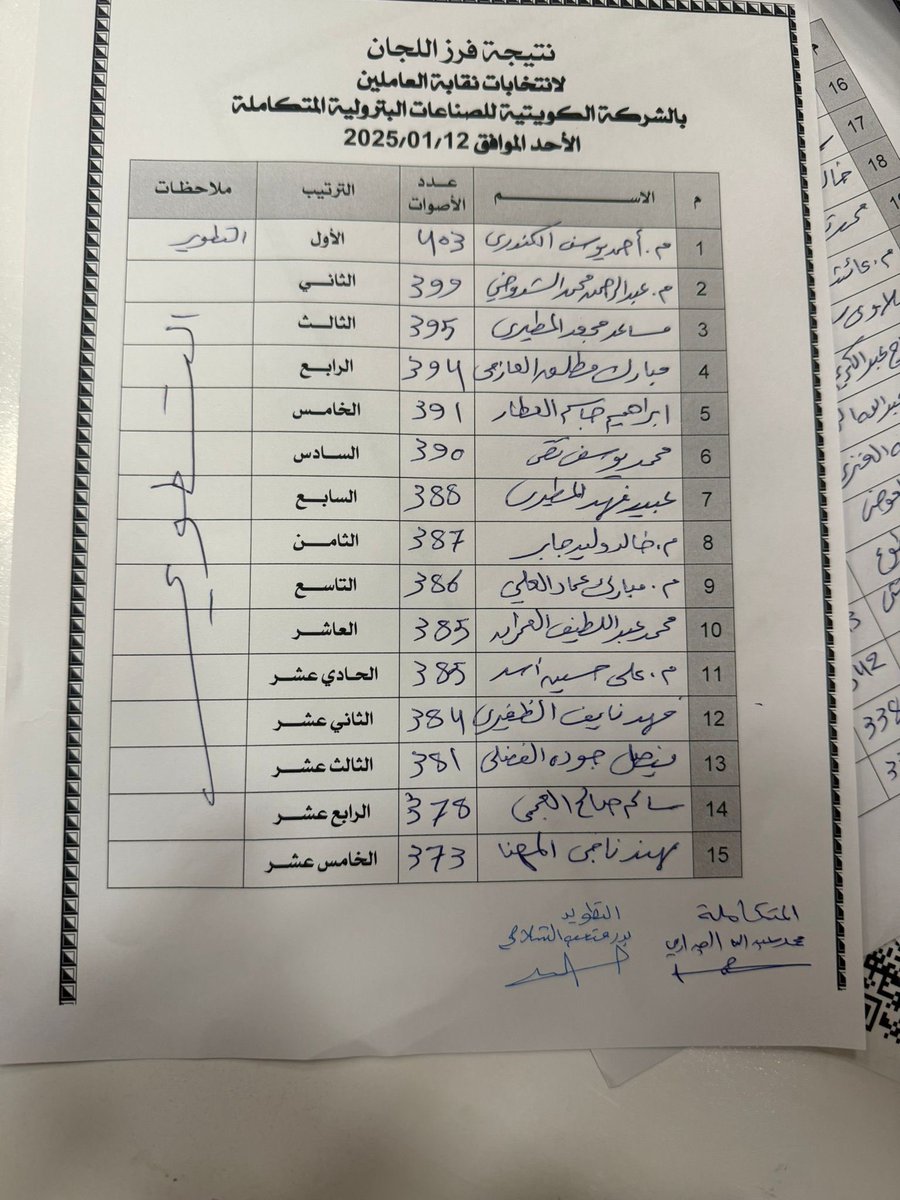 نتيجة فرز اللجان
لانتخابات نقابة العاملين
بالشركة الكويتية للصناعات البترولية المتكاملة
الأحد الموافق 2025/01/12
م الاسم عدد الأصوات الترتيب ملاحظات
1 م. أحمد يوسف الكندري 403 الأول التطوير
2 م. عبدالرحمن محمد 399 الثاني
3 مساعد محمد المطيري 395 الثالث
4 مبارك مطلق العازمي 394 الرابع
5 ابراهيم جاسم العطار 391 الخامس
6 محمد يوسف تقي 390 السادس
7 عبيد فهد المطيري 388 السابع
8 م. خالد وليد جابر 387 الثامن
9 م. مبارك عماد العلي 386 التاسع
10 محمد عبداللطيف 385 العاشر
11 م. علي حسين أسد 385 الحادي عشر
12 فهد نايف الظفيري 384 الثاني عشر
13 فيصل جوده الفضلي 381 الثالث عشر
14 سالم صالح العجمي 378 الرابع عشر
15 مهند ناجي المهنا 373 الخامس عشر
التطوير
المتكاملة
التطوير
16
17
18
م. عائشة
342
338